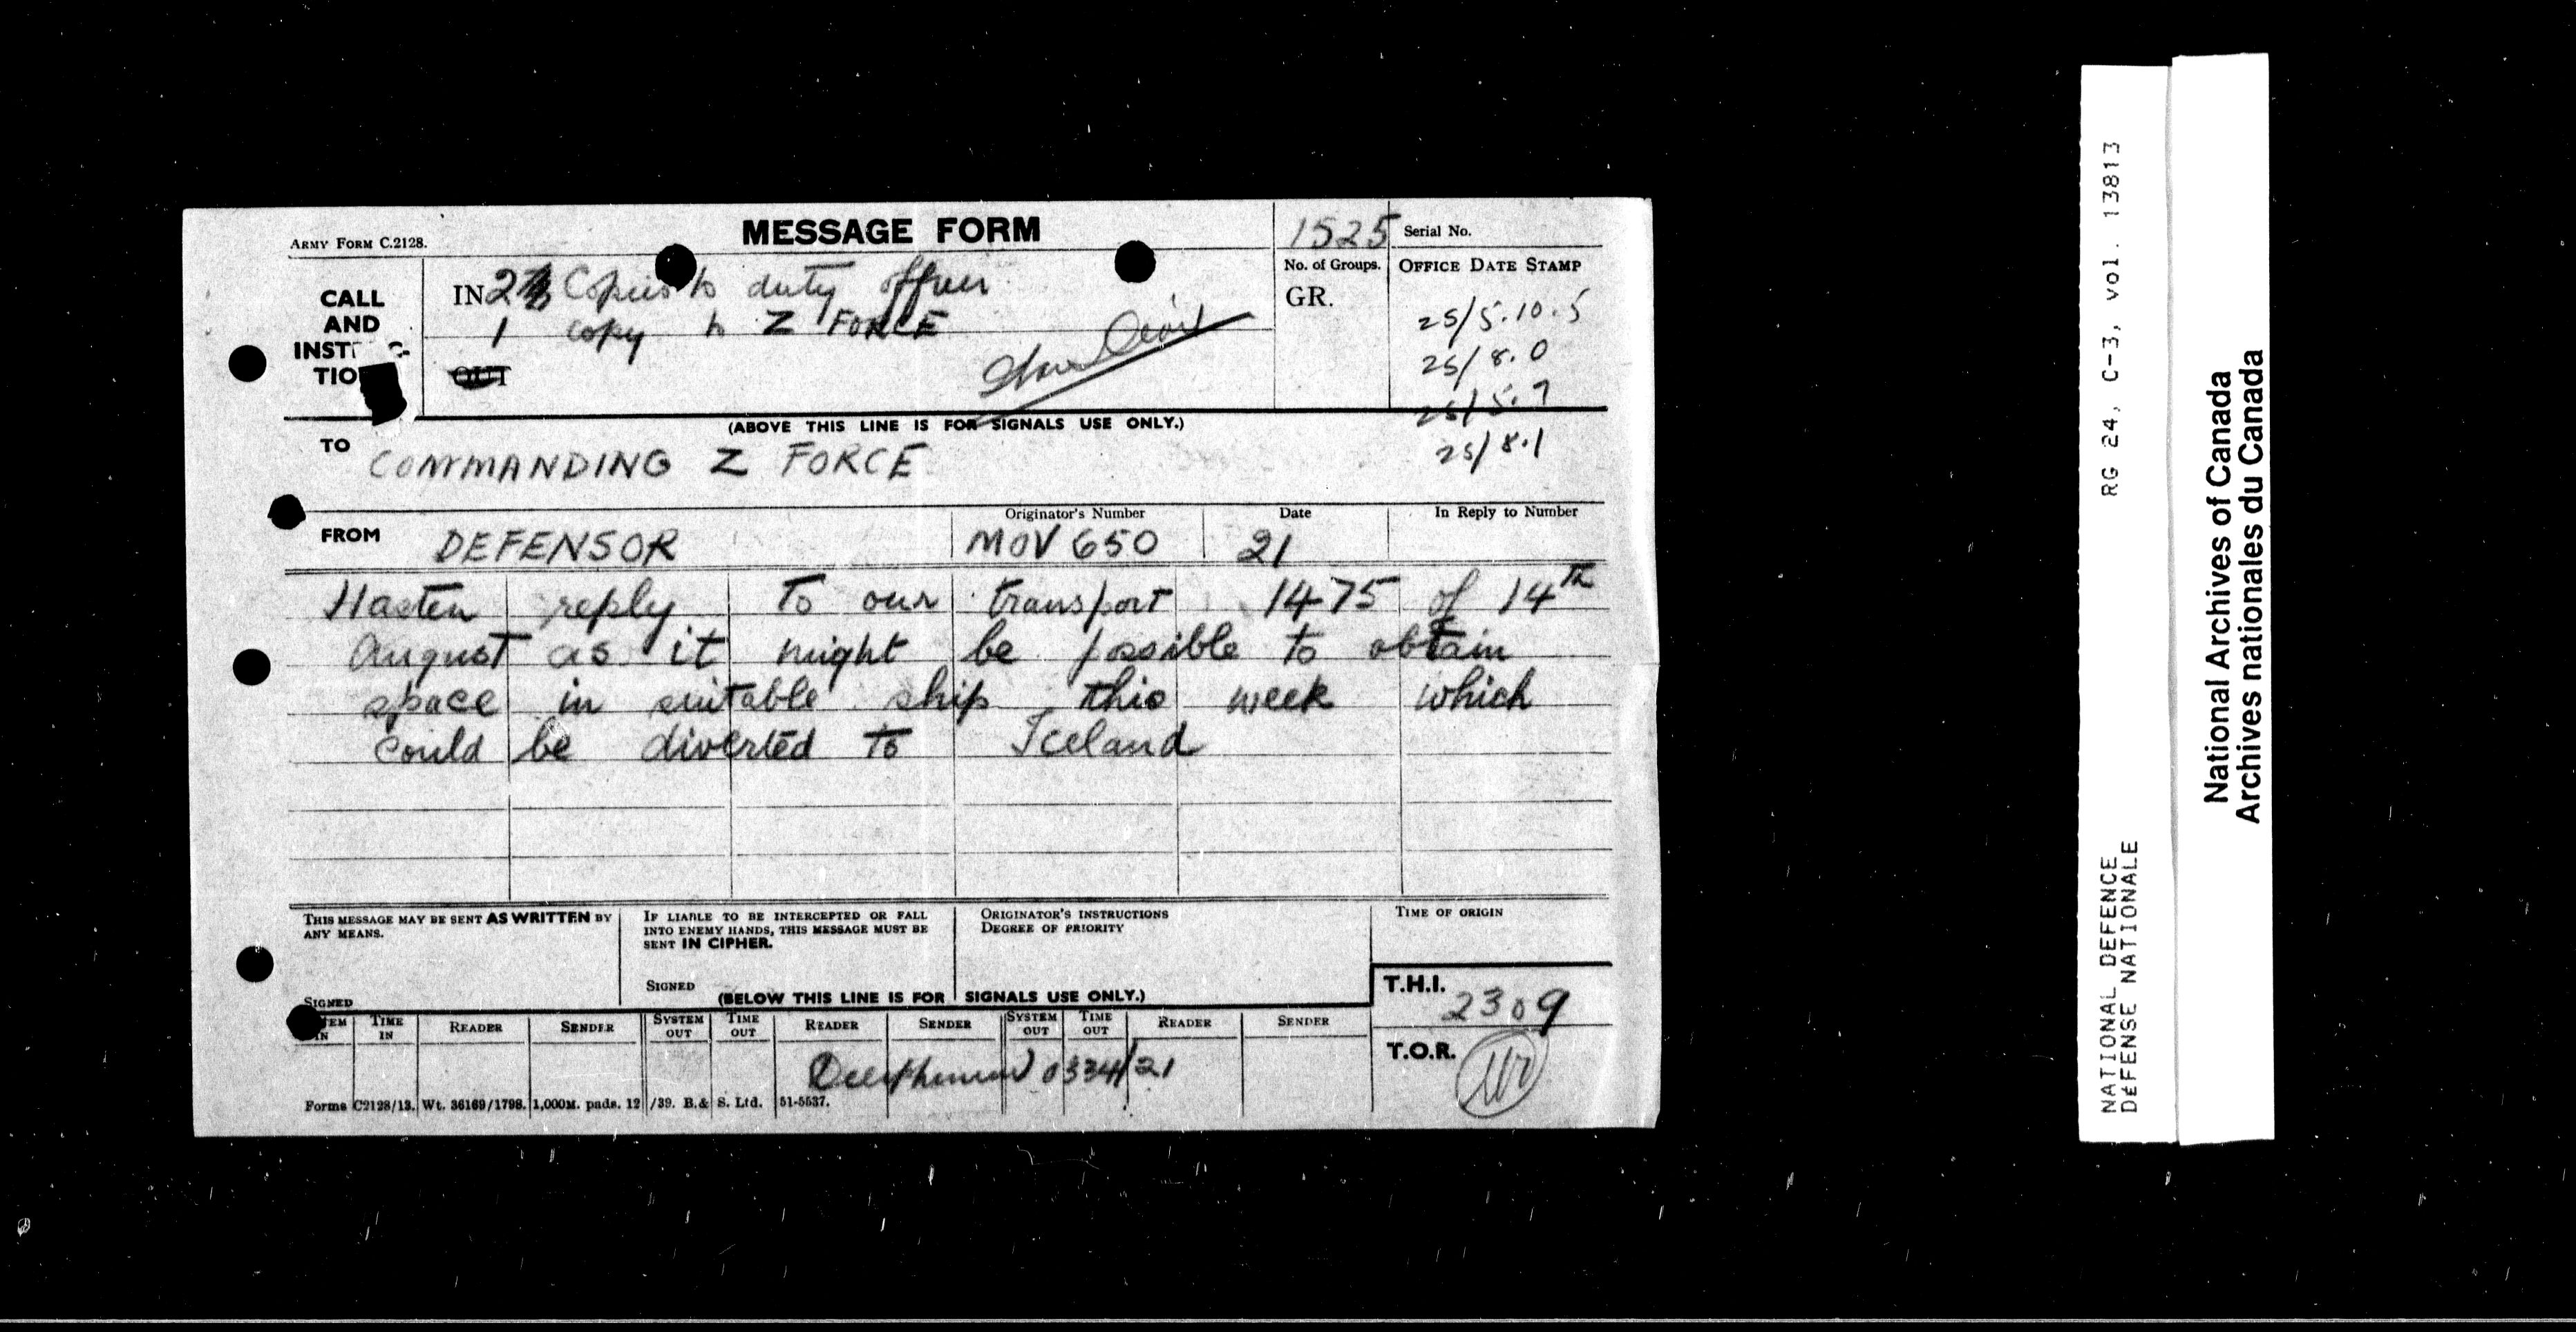 ARMY FORM C.2128.
MESSAGE FORM
1525 Serial No.
CALL AND INSTRUC-TION
IN 2 Copies to duty officer
1 copy to Z FORCE
OUT
No. of Groups.
GR.
OFFICE DATE STAMP
25/5.10.5
25/8.0
25/5.7
25/8.1
(ABOVE THIS LINE IS FOR SIGNALS USE ONLY.)
TO COMMANDING Z FORCE
FROM DEFENSOR
Originator's Number MOV 650
Date 21
In Reply to Number
Hasten reply to our transport 1475 of 14th
August as it might be possible to obtain
space in suitable ship this week which
could be diverted to Iceland
THIS MESSAGE MAY BE SENT AS WRITTEN BY
ANY MEANS.
SIGNED
IF LIABLE TO BE INTERCEPTED OR FALL
INTO ENEMY HANDS, THIS MESSAGE MUST BE
SENT IN CIPHER.
SIGNED
ORIGINATOR'S INSTRUCTIONS
DEGREE OF PRIORITY
TIME OF ORIGIN
(BELOW THIS LINE IS FOR SIGNALS USE ONLY.)
T.H.I. 2309
T.O.R.
TEM IN TIME IN READER SENDER SYSTEM OUT TIME OUT READER SENDER SYSTEM OUT TIME OUT READER SENDER
0334/21
Forms C2128/13. Wt. 36169/1798. 1,000M. pads. 12/39. B.& S. Ltd. 51-5537.
RG 24, C-3, vol. 13813
NATIONAL DEFENCE
DÉFENSE NATIONALE
National Archives of Canada
Archives nationales du Canada